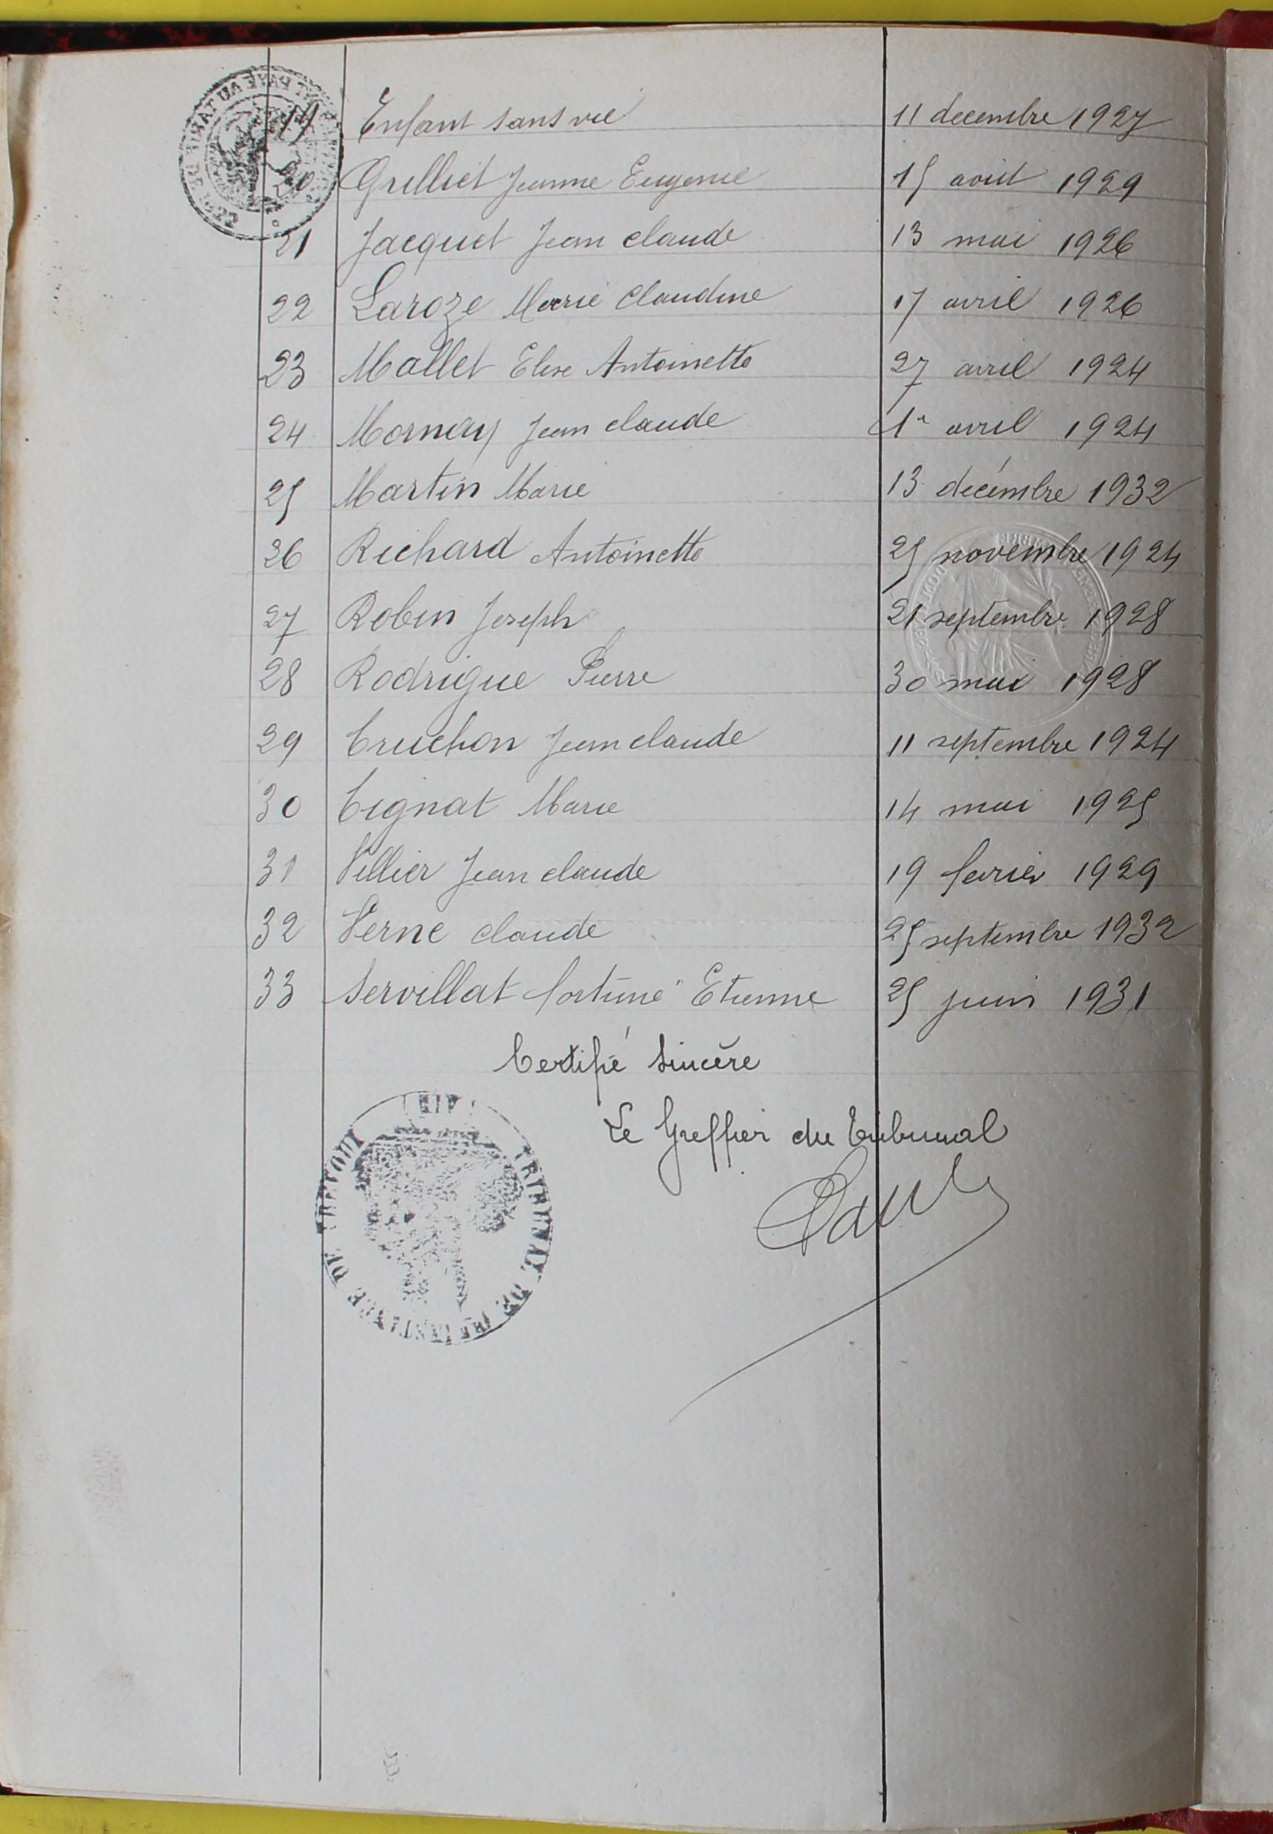 19 Enfant sans vie 11 decembre 1927
20 Grilliet Jeanne Eugenie 15 août 1929
21 Jacquet Jean claude 13 mai 1926
22 Laroze Marie Claudine 17 avril 1926
23 Mallet Elise Antoinette 27 avril 1924
24 Mornay Jean claude 1er avril 1924
25 Martin Marie 13 décembre 1932
26 Richard Antoinette 25 novembre 1924
27 Robin Joseph 21 septembre 1928
28 Rodrigue Pierre 30 mai 1928
29 Truchon Jean claude 11 septembre 1924
30 Tignat Marie 14 mai 1925
31 Villier Jean claude 19 fevrier 1929
32 Verne claude 25 septembre 1932
33 Servillat fortuné Etienne 25 juin 1931
Certifié sincère
Le Greffier du Tribunal
TRIBUNAL DE 1RE INSTANCE DE